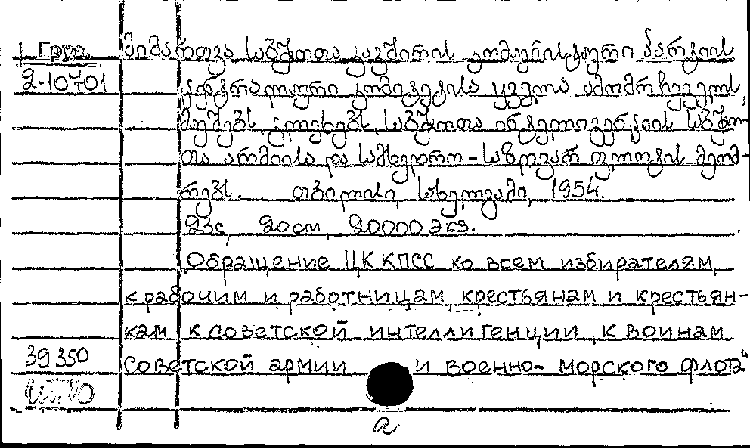 1 Груз. მიმართვა საბჭოთა კავშირის კომუნისტური პარტიის
2-10701 ცენტრალური კომიტეტისა ყველა ამომრჩეველს,
მუშებს გლეხებს, საბჭოთა ინტელიგენციის საბჭო-
თა არმიისა და სამხედრო-საზღვაო ფლოტის მეომ-
რებს. თბილისი, სახელგამი, 1954.
22გ, 20სმ, 20000 ეგზ.
Обращение ЦК КПСС ко всем избирателям,
к рабочим и работницам, крестьянам и крестьян-
кам к советской интеллигенции, к воинам
39350 советской армии и военно-морского флота"
a